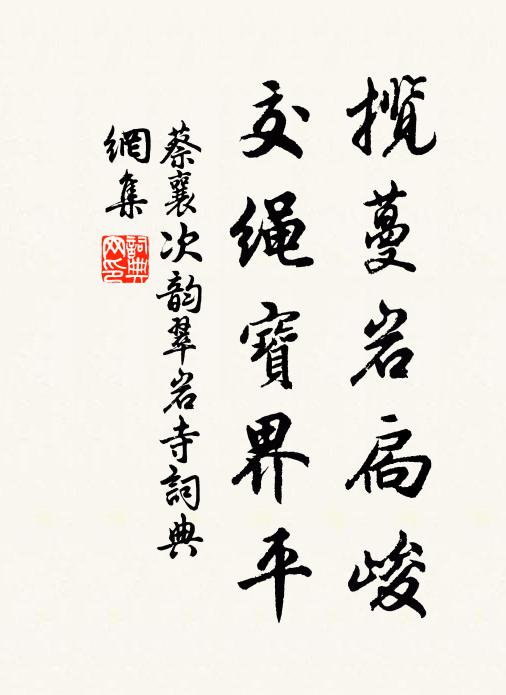 揽蔓岩扃峻
交绳寳界平
蔡襄次韵翠岩寺詞典
網集
詞典
网印